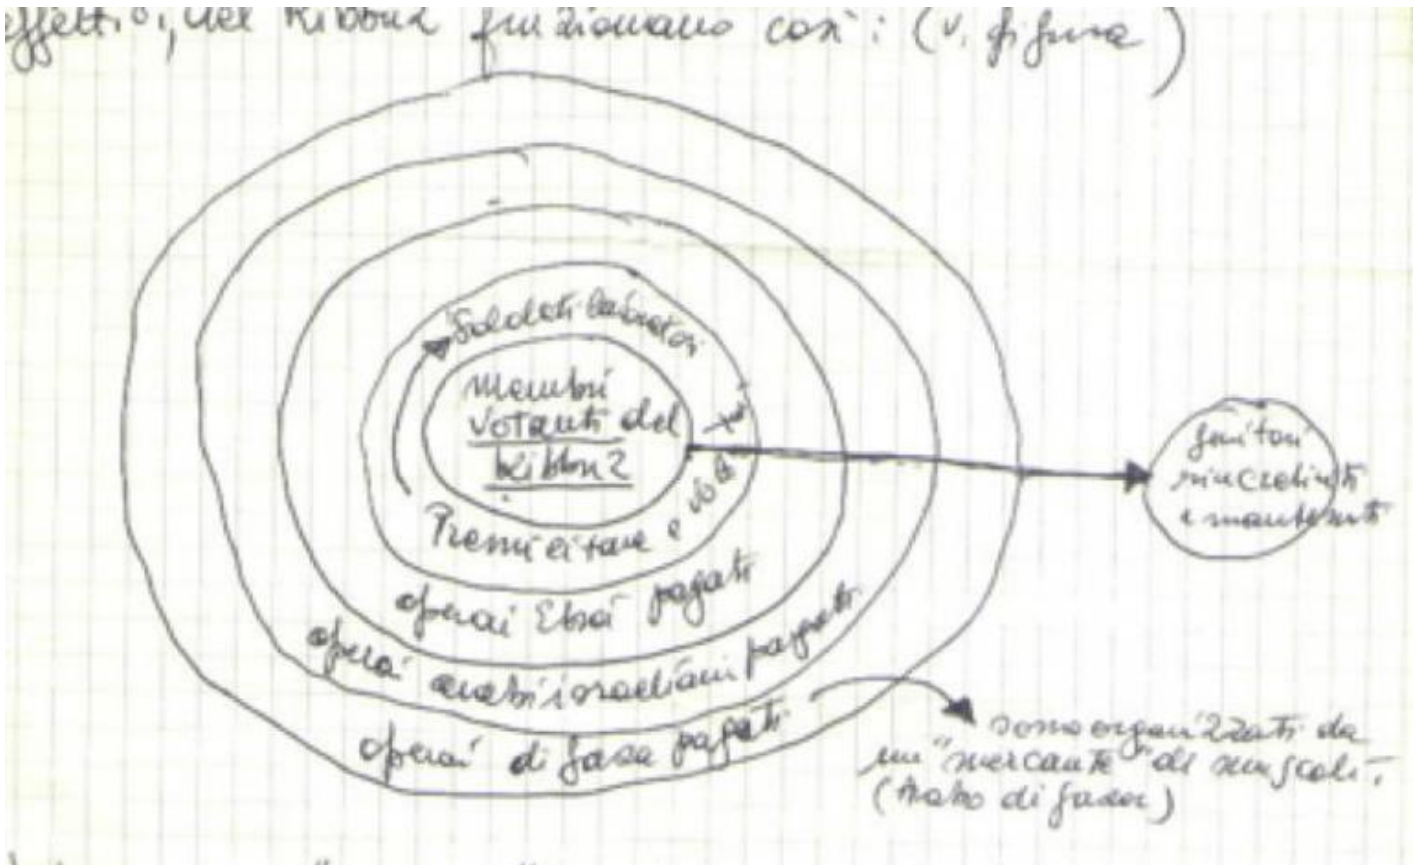 effettivi, nel Kibbuz funzionano così: (v. figura)
Soldati lavoratori
Membri
votanti del
Kibbuz
Premilitare e
operai Ebrei pagati
operai arabi israeliani pagati
operai di Gaza pagati
genitori
rincretiniti
e mantenuti
sono organizzati da
un "mercante" di muscoli.
(Arabo di Gaza)